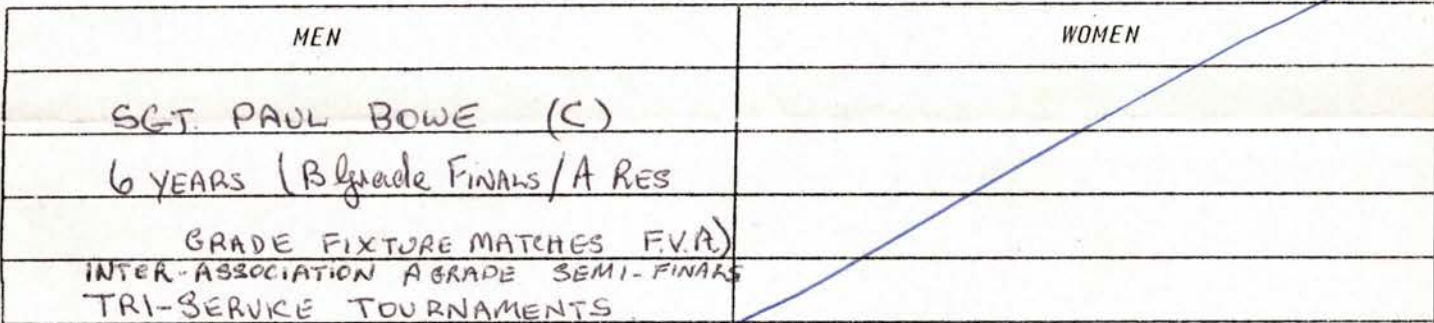 MEN WOMEN
SGT. PAUL BOWE (C)
6 YEARS (B Grade FINALS / A RES
GRADE FIXTURE MATCHES F.V.A)
INTER-ASSOCIATION A GRADE SEMI-FINALS
TRI-SERVICE TOURNAMENTS